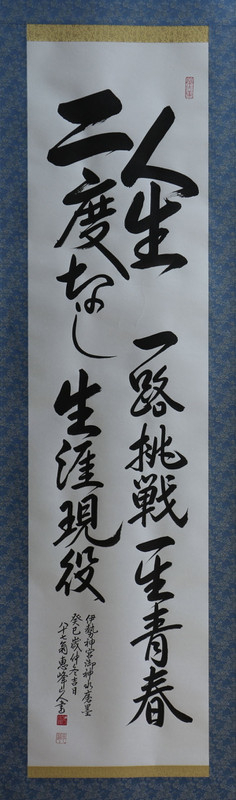 人生 一路挑戦一生青春
二度なし 生涯現役
伊勢神宮御神水磨墨
癸巳歳仲冬吉日
八十七翁惠峰山人書